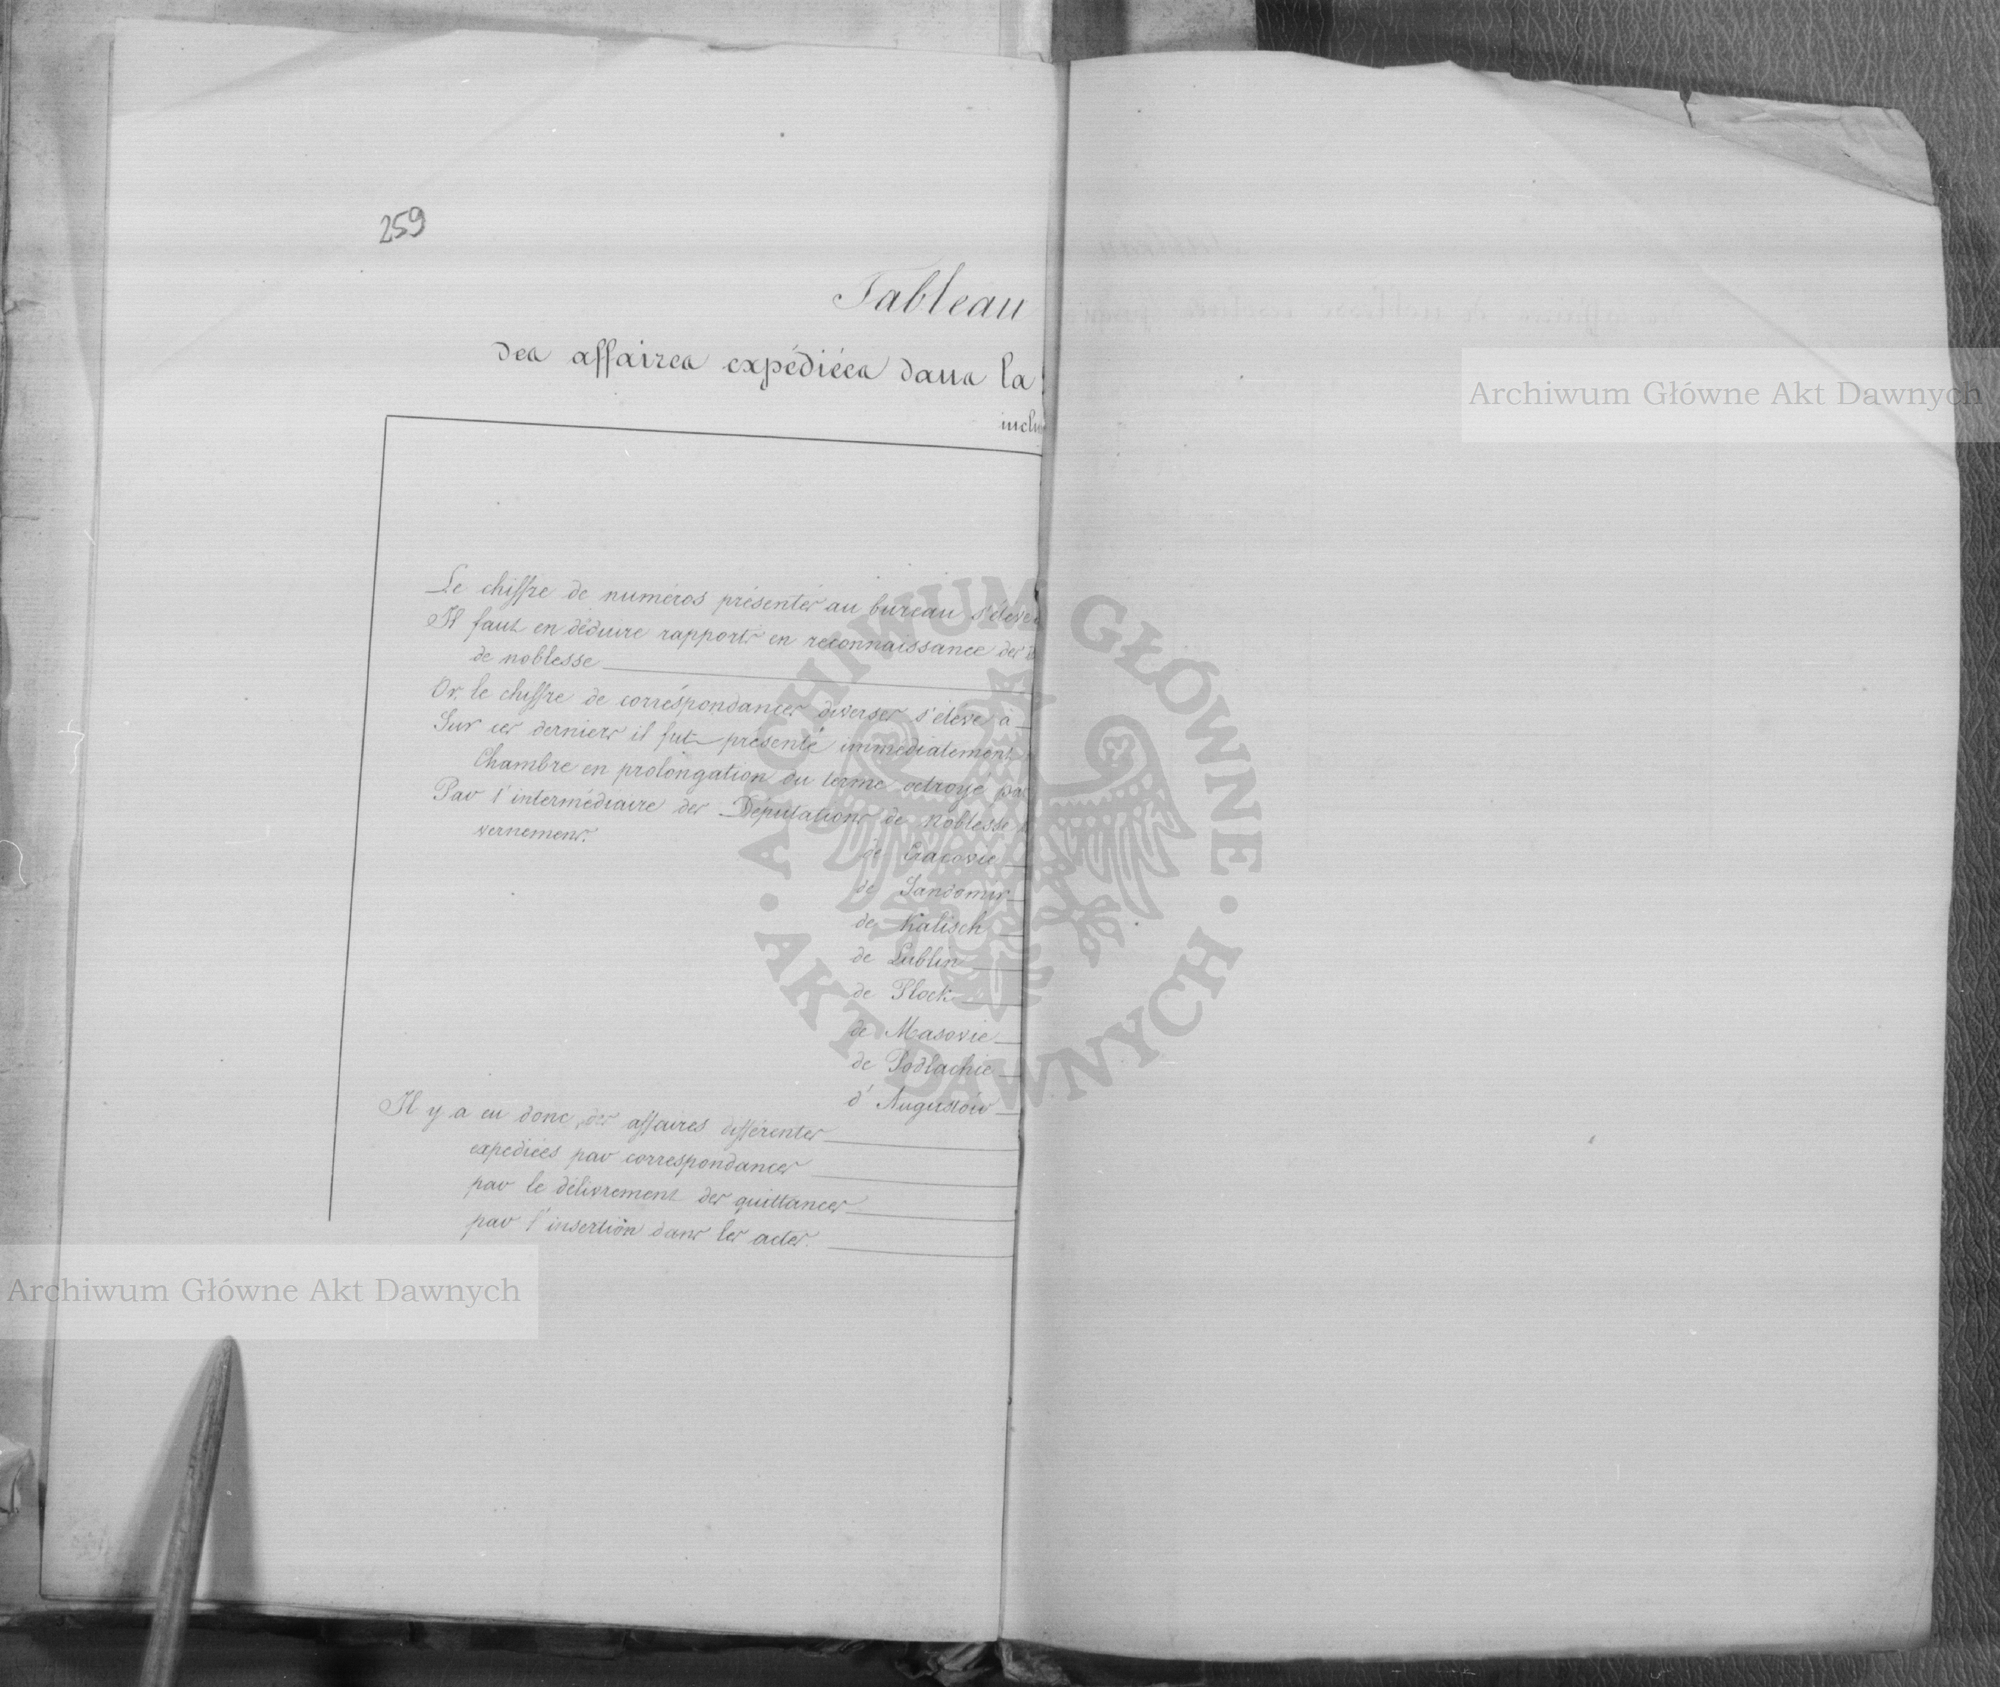 259
Tableau
des affaires expédiées dans la
inclu
Le chiffre de numéros présentés au bureau s'élève
Il faut en déduire rapports en reconnaissance des
de noblesse
Or le chiffre de correspondances diverses s'élève à
Sur ces derniers il fut présenté immédiatement
Chambre en prolongation du terme octroyé par
Par l'intermédiaire des Députations de noblesse
vernemens.
de Cracovie
de Sandomir
de Kalisch
de Lublin
de Plock
de Masovie
de Podlachie
d'Augustów
Il y a eu donc, des affaires différentes
expediées par correspondances
par le délivrement des quittances
par l'insertion dans les actes.
Archiwum Główne Akt Dawnych
Archiwum Główne Akt Dawnych
ARCHIWUM GŁÓWNE
AKT DAWNYCH